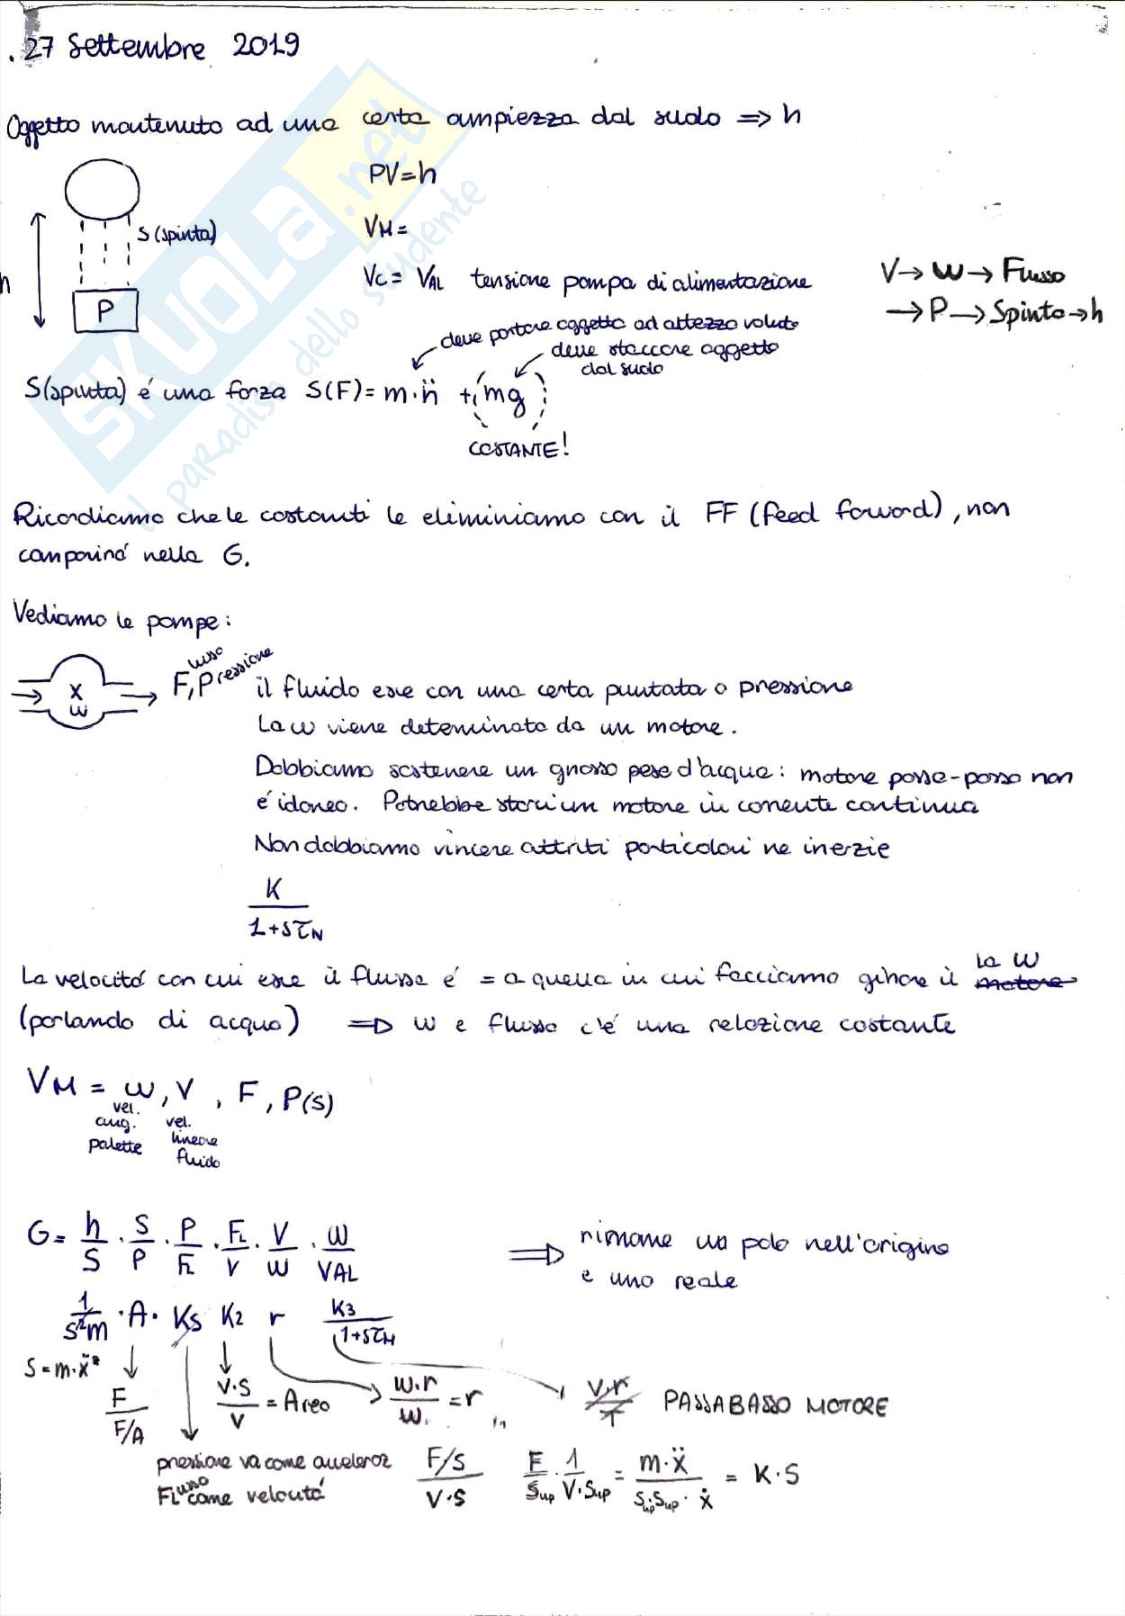 . 27 Settembre 2019
Oggetto mantenuto ad una certa ampiezza dal suolo => h
PV=h
S (spinta)
VM=
h
P
VC = VAL tensione pompa di alimentazione
V → W → Flusso
→ P → Spinta → h
deve portare oggetto ad altezza voluta
deve staccare oggetto
dal suolo
S(spinta) é una forza S(F) = m·ḧ + (mg)
COSTANTE!
Ricordiamo che le costanti le eliminiamo con il FF (feed forward), non
comparirá nella G.
Vediamo le pompe:
X
W
Flusso, Pressione
il fluido esce con una certa puntata o pressione
La w viene determinata da un motore.
Dobbiamo sostenere un grosso peso d'acqua: motore passo-passo non
é idoneo. Potrebbe starci un motore in corrente continua
Non dobbiamo vincere attriti particolari ne inerzie
K
1+sτN
La velocitá con cui esce il flusso é = a quella in cui facciamo girare il motore la W
(parlando di acqua) => w e flusso c'é una relazione costante
VM = w, V, F, P(s)
vel. ang. palette
vel. lineare fluido
G = h/S · S/P · P/FL · FL/V · V/W · W/VAL
=> rimane un polo nell'origine
e uno reale
1/s²m · A · KS K2 r K3/1+sτM
S = m·ẍ
F
F/A
V·S/V = Area
W·r/W = r
V·r/T PASSABASSO MOTORE
pressione va come acceleraz
Flusso come velocitá
F/S
V·S
F/Sup · 1/V·Sup = m·ẍ/Sup·Sup·ẋ = K·S
SKUOLA.net
il paradiso dello studente